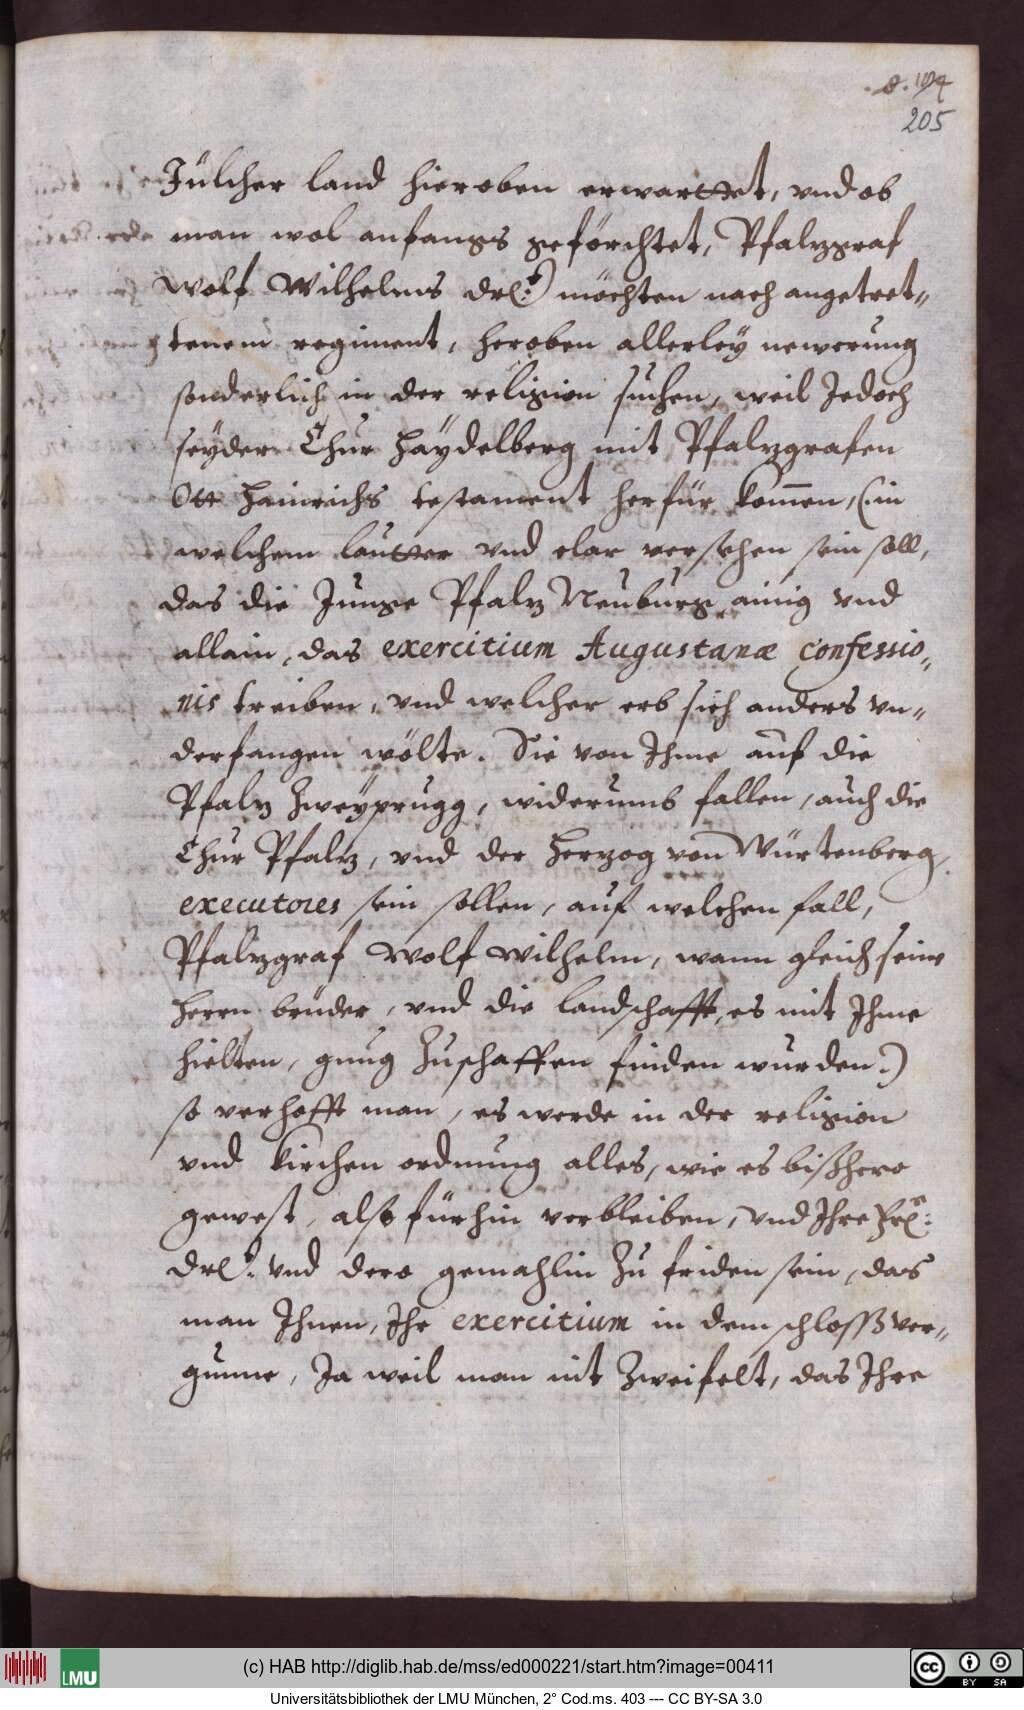 205
Jülcher land hieroben erwarttet, vnd ob
man wol anfangs geförchtet, Pfalzgraf
Wolf Wilhelms drl:) möchten nach angetret„
tenem regiment, heroben allerley newerung
sonderlich in der religion suchen, weil Jedoch
seyder Chur Haÿdelberg mit Pfalzgrafen
Ott Hainrichs testament herfür kom̄en, (:in
welchem lautter vnd clar versehen sein soll,
das die Junge Pfalz Neuburg ainig vnd
allain, das exercitium Augustanæ confessio„
nis treiben, vnd welcher erb sich anders vn„
derfangen wölte. Sie von Ihme auf die
Pfalz Zweÿprugg, widerumb fallen, auch die
Chur Pfalz, vnd der Herzog von Würtenberg,
executores sein sollen, auf welchen fall,
Pfalzgraf Wolf Wilhelm, wann gleich seine
Herrn brüder, vnd die landschafft, es mit Ihme
hielten, gnug Zuschaffen finden wurden:)
so verhofft man, es werde in der religion
vnd kirchen ordnung alles, wie es bißhero
gewest, also fürhin verbleiben, vnd Ihre Frl:
drl: vnd dero gemahlin Zu friden sein, das
man Ihnen, Ihr exercitium in dem schloß ver„
gunne, Ja weil man nit Zweifelt, das Ihre
(c) HAB http://diglib.hab.de/mss/ed000221/start.htm?image=00411
LMU
cc BY SA
Universitätsbibliothek der LMU München, 2° Cod.ms. 403 --- CC BY-SA 3.0